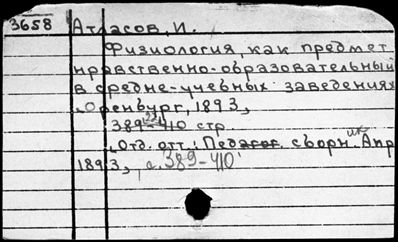 3658 Атласов, И.
Физиология, как предмет
нравственно-образовательный
в средне-учебных заведениях
Оренбург, 1893,
389-410 стр.
Отд. отт.: Педагог. сборник Апр
1893, с. 389-410